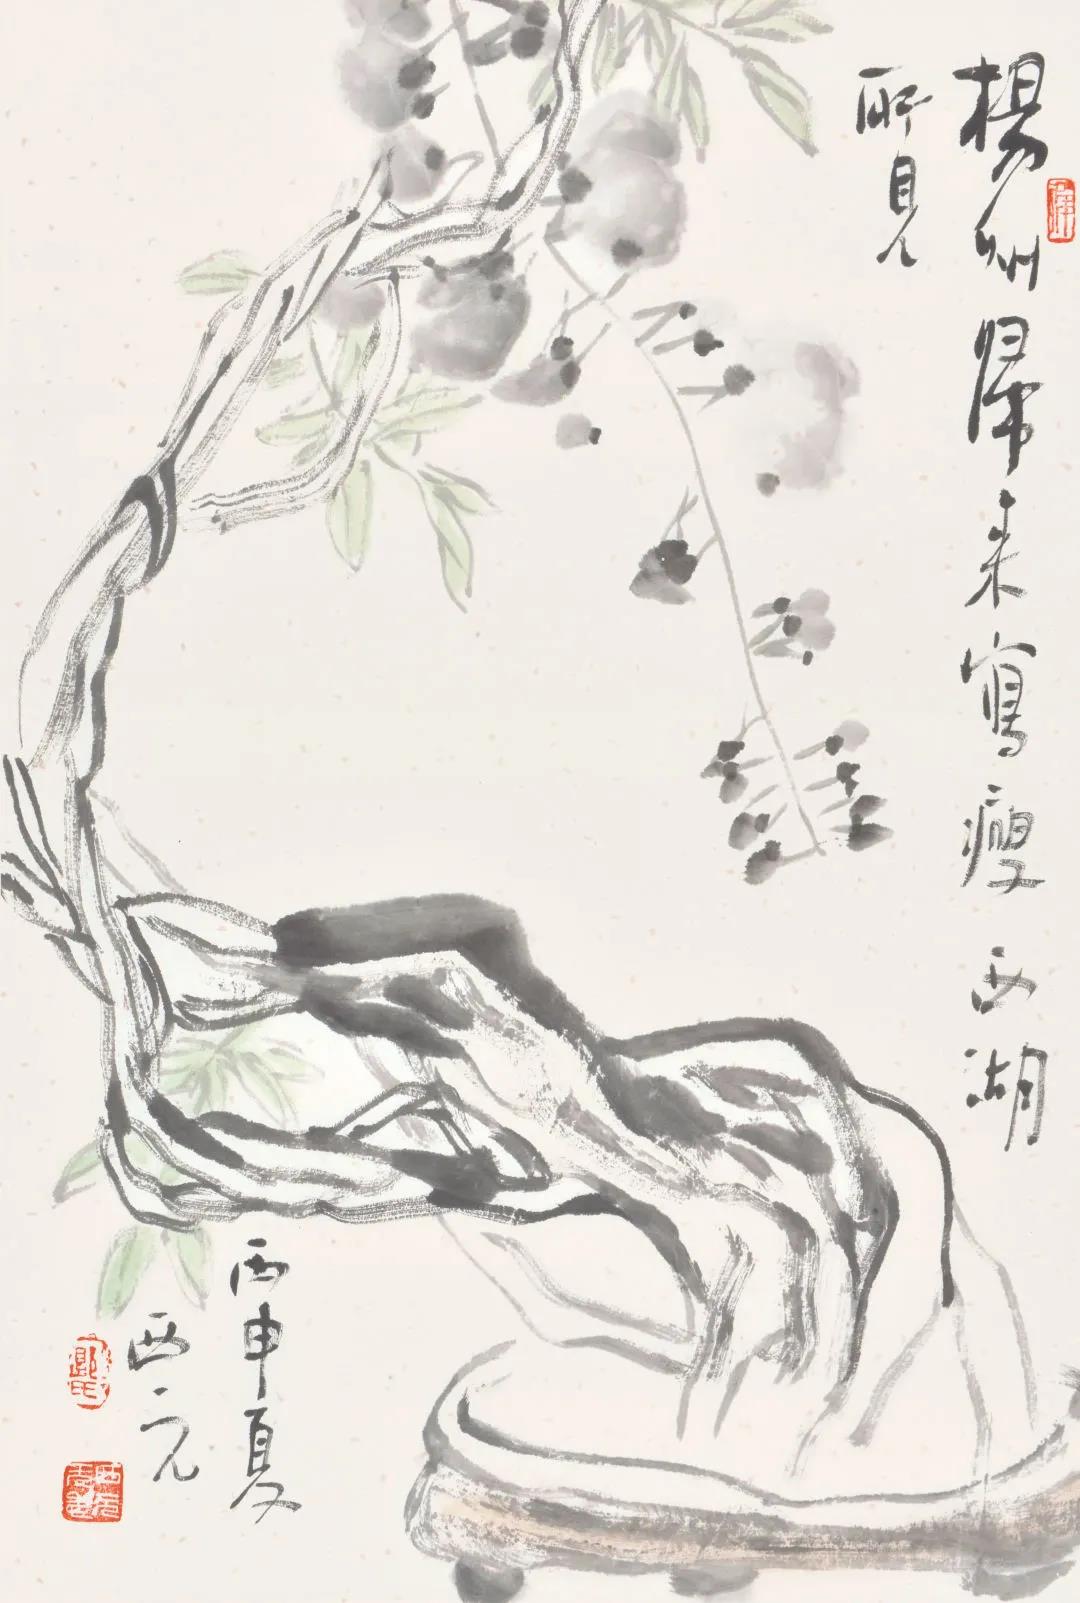 楊州归來寫瘦西湖
所見
丙申夏
西元